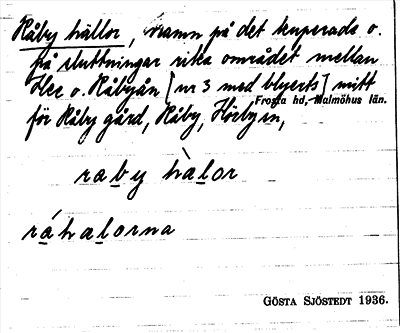 Råby hällor, namn på det kuperade o.
på sluttningar rika området mellan
Hee o. Råbyån [nr 3 med blyerts] mitt
Frosta hd, Malmöhus län.
för Råby gård, Råby, Hörby sn,
raby hàlor
ráhalorna
GÖSTA SJÖSTEDT 1936.